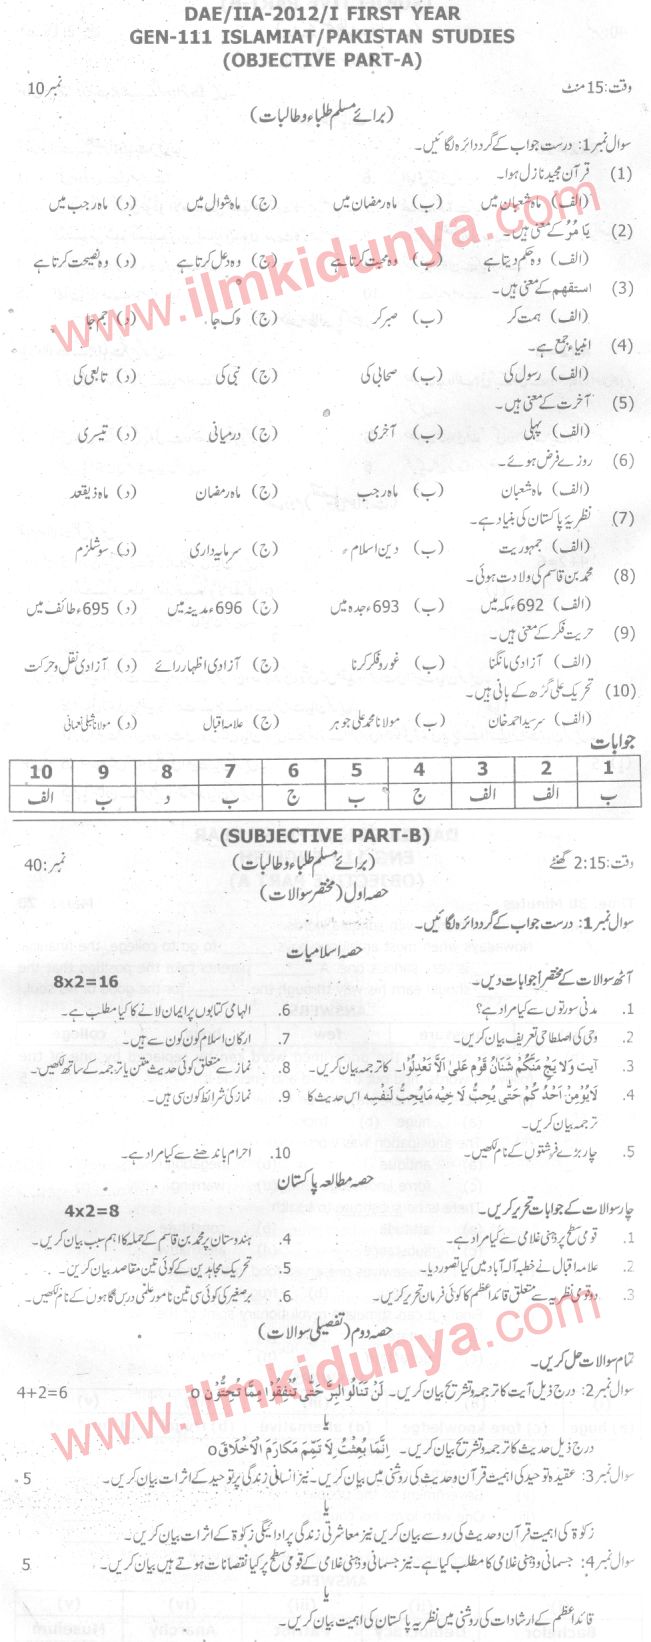 DAE/IIA-2012/I FIRST YEAR
GEN-111 ISLAMIAT/PAKISTAN STUDIES
(OBJECTIVE PART-A)
وقت:15 منٹ نمبر10
(برائے مسلم طلباء و طالبات)
سوال نمبر1: درست جواب کے گرد دائرہ لگائیں۔
(1) قرآن مجید نازل ہوا۔
(الف) ماہ شعبان میں (ب) ماہ رمضان میں (ج) ماہ شوال میں (د) ماہ رجب میں
(2) یَامُرُ کے معنی ہیں۔
(الف) وہ حکم دیتا ہے (ب) وہ محبت کرتا ہے (ج) وہ عدل کرتا ہے (د) وہ نصیحت کرتا ہے
(3) استقھم کے معنی ہیں۔
(الف) ہمت کر (ب) صبر کر (ج) رک جا (د) جم جا
(4) انبیاء جمع ہے۔
(الف) رسول کی (ب) صحابی کی (ج) نبی کی (د) تابعی کی
(5) آخرت کے معنی ہیں۔
(الف) پہلی (ب) آخری (ج) درمیانی (د) تیسری
(6) روزے فرض ہوئے۔
(الف) ماہ شعبان (ب) ماہ رجب (ج) ماہ رمضان (د) ماہ ذیقعد
(7) نظریۂ پاکستان کی بنیاد ہے۔
(الف) جمہوریت (ب) دین اسلام (ج) سرمایہ داری (د) سوشلزم
(8) محمد بن قاسم کی ولادت ہوئی۔
(الف) 692ء مکہ میں (ب) 693ء جدہ میں (ج) 696ء مدینہ میں (د) 695ء طائف میں
(9) حریت فکر کے معنی ہیں۔
(الف) آزادی مانگنا (ب) غور و فکر کرنا (ج) آزادی اظہار رائے (د) آزادی نقل و حرکت
(10) تحریک علی گڑھ کے بانی ہیں۔
(الف) سرسید احمد خان (ب) مولانا محمد علی جوہر (ج) علامہ اقبال (د) مولانا شبلی نعمانی
جوابات
1 2 3 4 5 6 7 8 9 10
ب الف الف ج ب ج ب د ب الف
(SUBJECTIVE PART-B)
وقت:2:15 گھنٹے (برائے مسلم طلباء و طالبات) نمبر:40
حصہ اول (مختصر سوالات)
سوال نمبر1: درست جواب کے گرد دائرہ لگائیں۔
حصہ اسلامیات
آٹھ سوالات کے مختصر اجوابات دیں۔ 8x2=16
1. مدنی سورتوں سے کیا مراد ہے؟ 6. الہامی کتابوں پر ایمان لانے کا کیا مطلب ہے۔
2. وحی کی اصطلاحی تعریف بیان کریں۔ 7. ارکان اسلام کون کون سے ہیں۔
3. آیت وَلَا یَجْرِمَنَّکُمْ شَنَاٰنُ قَوْمٍ عَلیٰ اَلَّا تَعْدِلُوْا۔ کا ترجمہ بیان کریں۔ 8. نماز سے متعلق کوئی حدیث متن یا ترجمہ کے ساتھ لکھیں۔
4. لَایُؤمِنُ اَحَدُکُمْ حَتّٰی یُحِبُّ لَا خِیْہِ مَایُحِبُّ لِنَفْسِہٖ اس حدیث کا 9. نماز کی شرائط کون سی ہیں۔
ترجمہ بیان کریں۔
5. چار بڑے فرشتوں کے نام لکھیں۔ 10. احرام باندھنے سے کیا مراد ہے۔
حصہ مطالعہ پاکستان
چار سوالات کے جوابات تحریر کریں۔ 4x2=8
1. قومی سطح پر ذہنی غلامی سے کیا مراد ہے۔ 4. ہندوستان پر محمد بن قاسم کے حملہ کا اہم سبب بیان کریں۔
2. علامہ اقبال نے خطبہ آلہ آباد میں کیا تصور دیا۔ 5. تحریک مجاہدین کے کوئی تین مقاصد بیان کریں۔
3. دو قومی نظریہ سے متعلق قائداعظم کا کوئی فرمان تحریر کریں۔ 6. برصغیر کی کوئی سی تین نامور علمی درس گاہوں کے نام لکھیں۔
حصہ دوم (تفصیلی سوالات)
تمام سوالات حل کریں۔
سوال نمبر2: درج ذیل آیت کا ترجمہ و تشریح بیان کریں۔ لَنْ تَنَالُوا الْبِرَّ حَتّٰی تُنْفِقُوْا مِمَّا تُحِبُّوْنَ o 4+2=6
یا
درج ذیل حدیث کا ترجمہ و تشریح بیان کریں۔ اِنَّمَا بُعِثْتُ لِاُ تَمِّمَ مَکَارِمَ الْاَخْلَاقَ o
سوال نمبر3: عقیدہ توحید کی اہمیت قرآن و حدیث کی روشنی میں بیان کریں۔ نیز انسانی زندگی پر توحید کے اثرات بیان کریں۔ 5
یا
زکوٰۃ کی اہمیت قرآن و حدیث کی رو سے بیان کریں نیز معاشرتی زندگی پر ادائیگی زکوٰۃ کے اثرات بیان کریں۔
سوال نمبر4: جسمانی و ذہنی غلامی کا مطلب کیا ہے۔ نیز جسمانی و ذہنی غلامی کے قومی سطح پر کیا نقصانات ہوتے ہیں بیان کریں۔ 5
یا
قائداعظم کے ارشادات کی روشنی میں نظریہ پاکستان کی اہمیت بیان کریں۔
www.ilmkidunya.com
www.ilmkidunya.com